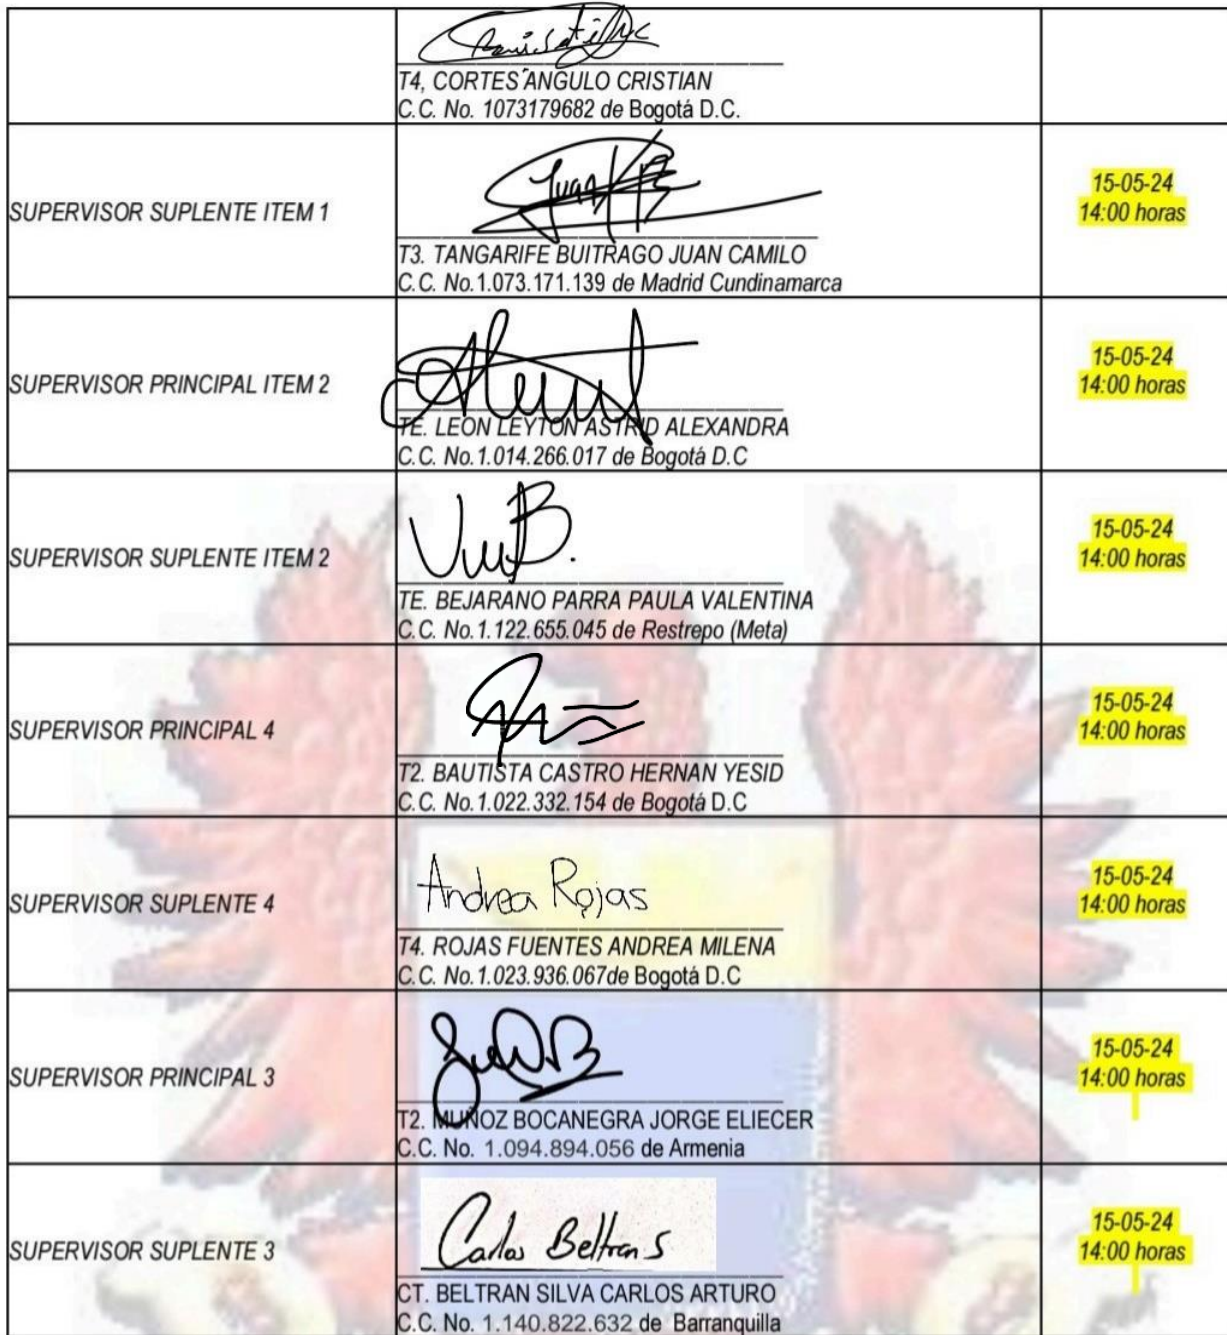 T4, CORTES ANGULO CRISTIAN
C.C. No. 1073179682 de Bogotá D.C.
SUPERVISOR SUPLENTE ITEM 1
T3. TANGARIFE BUITRAGO JUAN CAMILO
C.C. No.1.073.171.139 de Madrid Cundinamarca
15-05-24
14:00 horas
SUPERVISOR PRINCIPAL ITEM 2
TE. LEON LEYTON ASTRID ALEXANDRA
C.C. No.1.014.266.017 de Bogotá D.C
15-05-24
14:00 horas
SUPERVISOR SUPLENTE ITEM 2
TE. BEJARANO PARRA PAULA VALENTINA
C.C. No.1.122.655.045 de Restrepo (Meta)
15-05-24
14:00 horas
SUPERVISOR PRINCIPAL 4
T2. BAUTISTA CASTRO HERNAN YESID
C.C. No.1.022.332.154 de Bogotá D.C
15-05-24
14:00 horas
SUPERVISOR SUPLENTE 4
Andrea Rojas
T4. ROJAS FUENTES ANDREA MILENA
C.C. No.1.023.936.067de Bogotá D.C
15-05-24
14:00 horas
SUPERVISOR PRINCIPAL 3
T2. MUÑOZ BOCANEGRA JORGE ELIECER
C.C. No. 1.094.894.056 de Armenia
15-05-24
14:00 horas
SUPERVISOR SUPLENTE 3
Carlos Beltran S
CT. BELTRAN SILVA CARLOS ARTURO
C.C. No. 1.140.822.632 de Barranquilla
15-05-24
14:00 horas